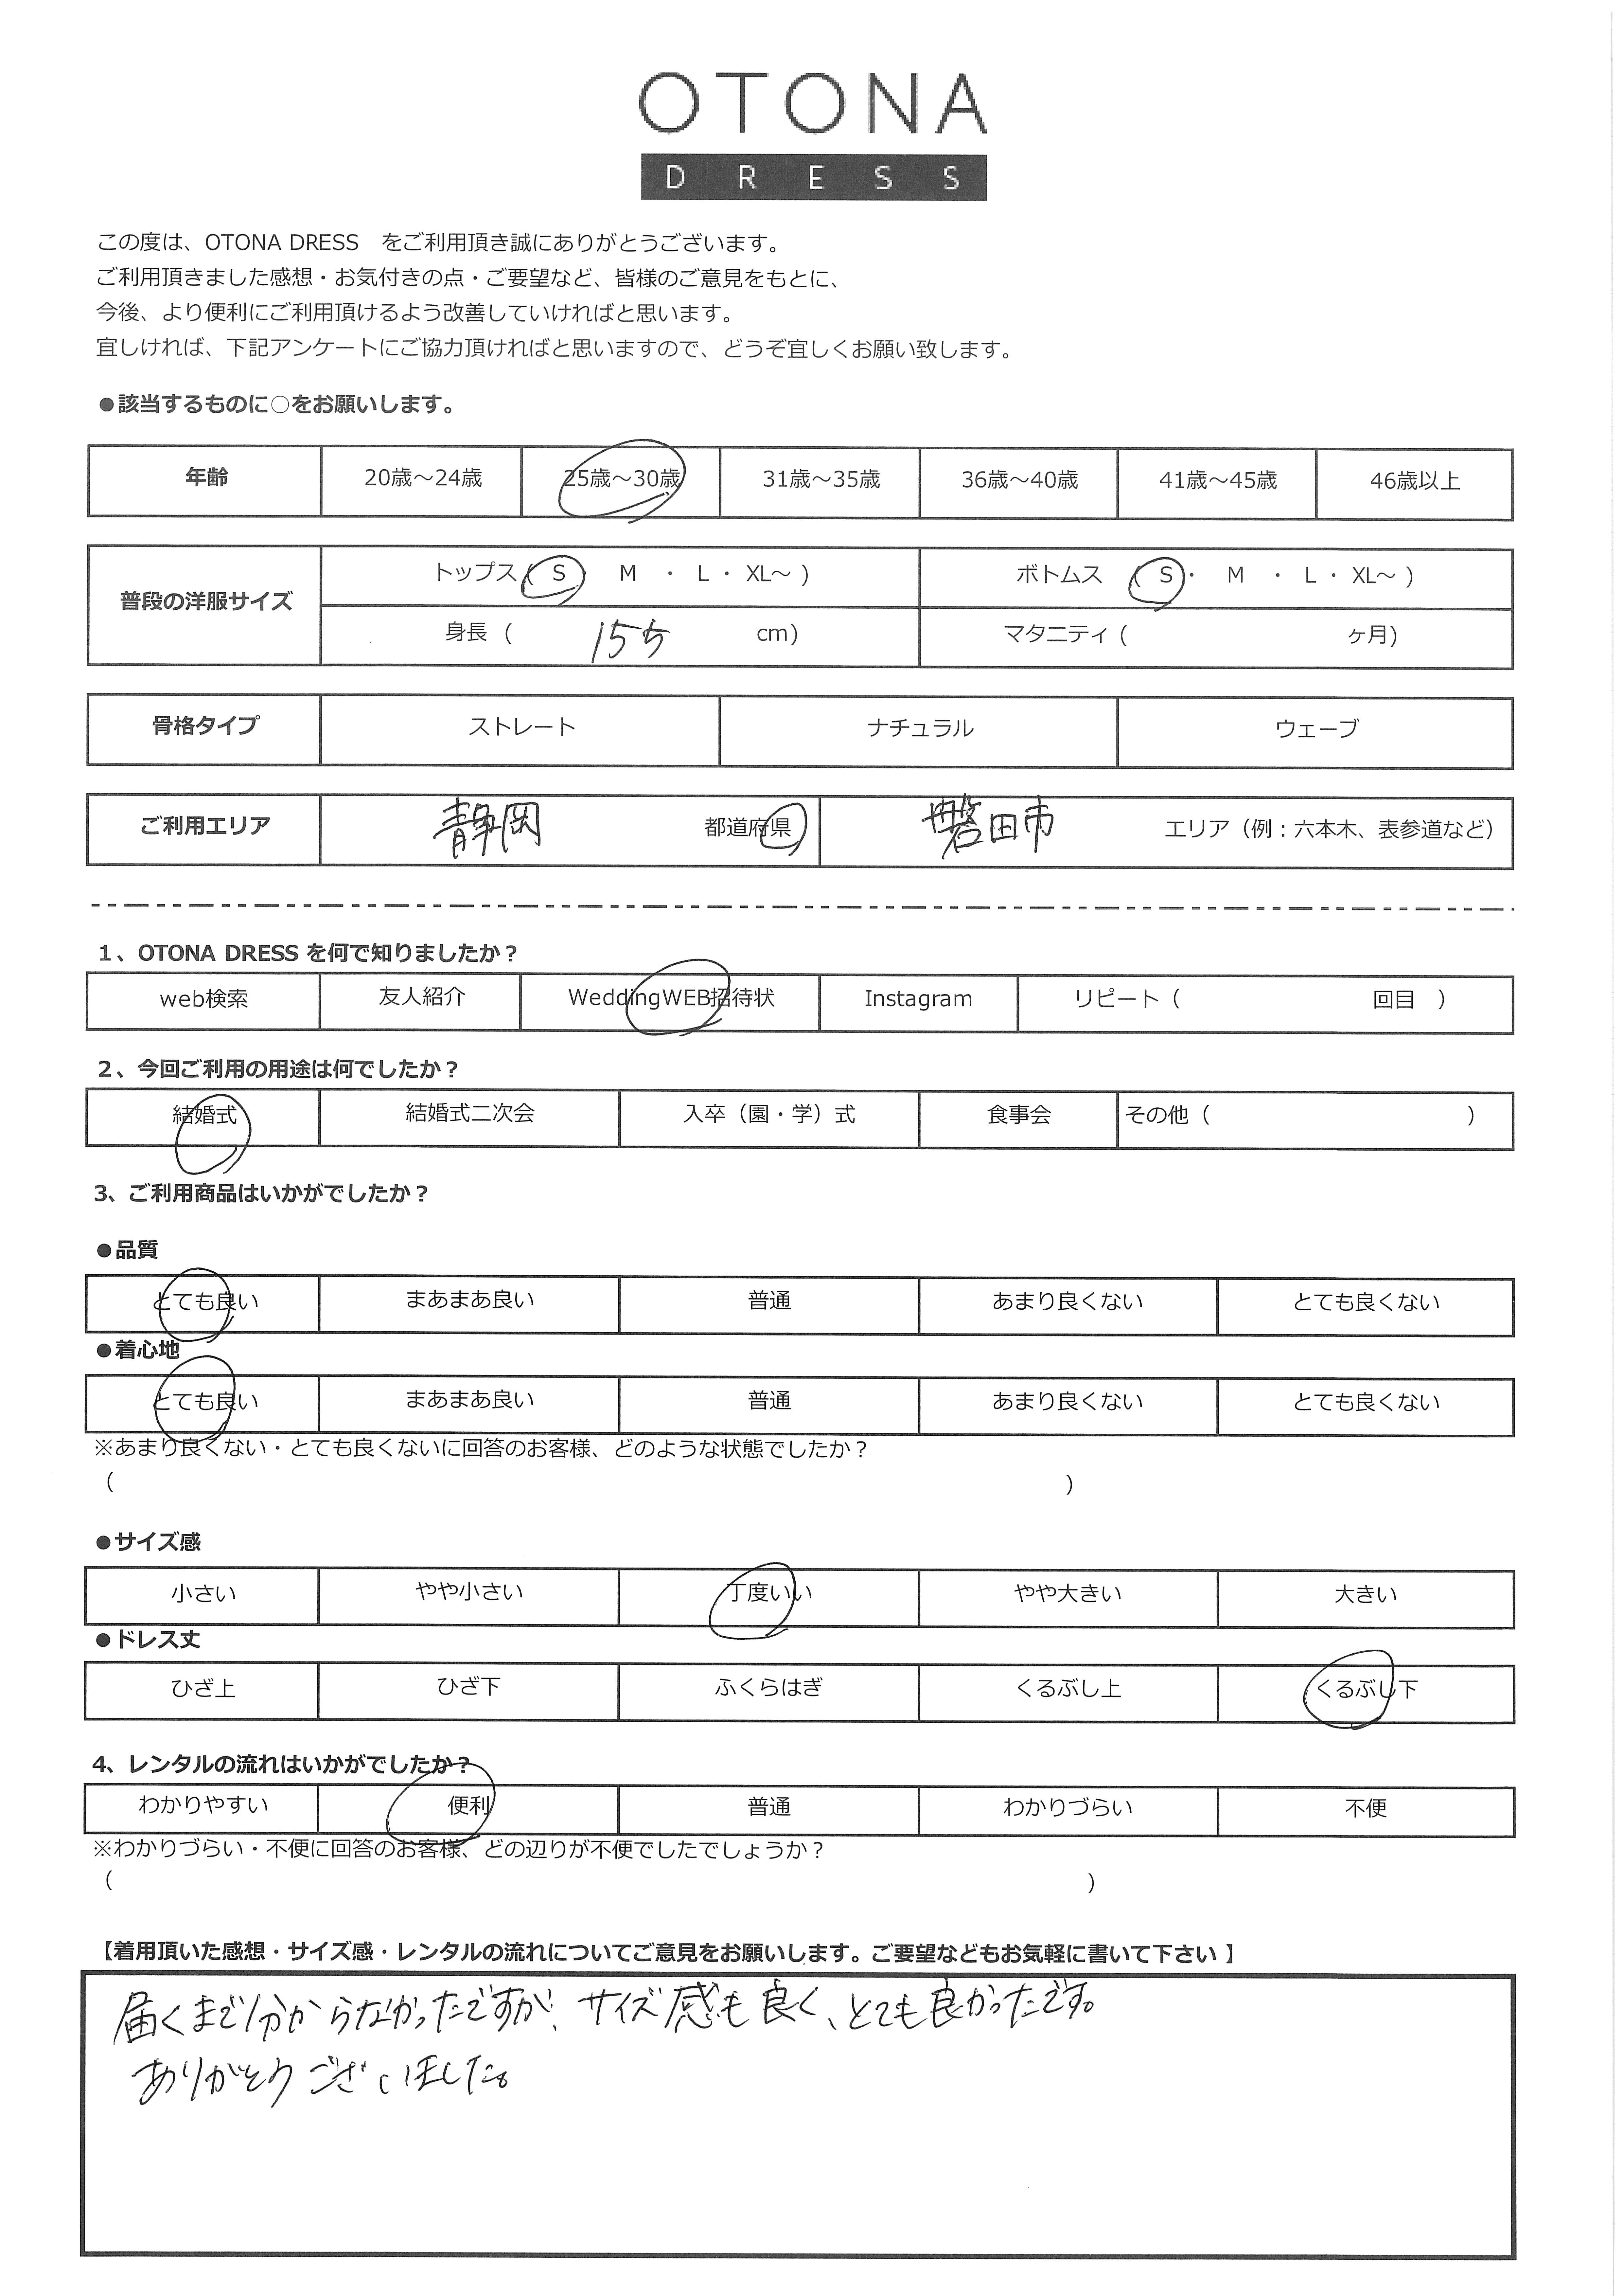 OTONA
DRESS
この度は、OTONA DRESS をご利用頂き誠にありがとうございます。
ご利用頂きました感想・お気付きの点・ご要望など、皆様のご意見をもとに、
今後、より便利にご利用頂けるよう改善していければと思います。
宜しければ、下記アンケートにご協力頂ければと思いますので、どうぞ宜しくお願い致します。
●該当するものに○をお願いします。
年齢 20歳～24歳 25歳～30歳 31歳～35歳 36歳～40歳 41歳～45歳 46歳以上
普段の洋服サイズ
トップス ( S ・ M ・ L ・ XL～ ) ボトムス ( S ・ M ・ L ・ XL～ )
身長 ( 155 cm) マタニティ ( ヶ月)
骨格タイプ ストレート ナチュラル ウェーブ
ご利用エリア 静岡 都道府県 磐田市 エリア（例：六本木、表参道など）
1、OTONA DRESS を何で知りましたか？
web検索 友人紹介 WeddingWEB招待状 Instagram リピート（ 回目 ）
2、今回ご利用の用途は何でしたか？
結婚式 結婚式二次会 入卒（園・学）式 食事会 その他（ ）
3、ご利用商品はいかがでしたか？
●品質
とても良い まあまあ良い 普通 あまり良くない とても良くない
●着心地
とても良い まあまあ良い 普通 あまり良くない とても良くない
※あまり良くない・とても良くないに回答のお客様、どのような状態でしたか？
（ ）
●サイズ感
小さい やや小さい 丁度いい やや大きい 大きい
●ドレス丈
ひざ上 ひざ下 ふくらはぎ くるぶし上 くるぶし下
4、レンタルの流れはいかがでしたか？
わかりやすい 便利 普通 わかりづらい 不便
※わかりづらい・不便に回答のお客様、どの辺りが不便でしたでしょうか？
（ ）
【着用頂いた感想・サイズ感・レンタルの流れについてご意見をお願いします。ご要望などもお気軽に書いて下さい 】
届くまで分からなかったですが、サイズ感も良く、とても良かったです。
ありがとうございました。